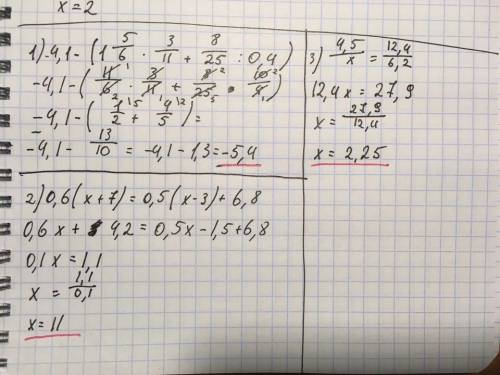 x = 2
1) -4,1 - (1 5/6 · 3/11 + 8/25 : 0,4)
-4,1 - (11/6 · 3/11 + 8/25 · 10/4)
-4,1 - (1/2 + 4/5) =
-4,1 - 13/10 = -4,1 - 1,3 = -5,4
2) 0,6(x+7) = 0,5(x-3) + 6,8
0,6x + 4,2 = 0,5x - 1,5 + 6,8
0,1x = 1,1
x = 1,1/0,1
x = 11
3) 4,5/x = 12,4/6,2
12,4x = 27,9
x = 27,9/12,4
x = 2,25